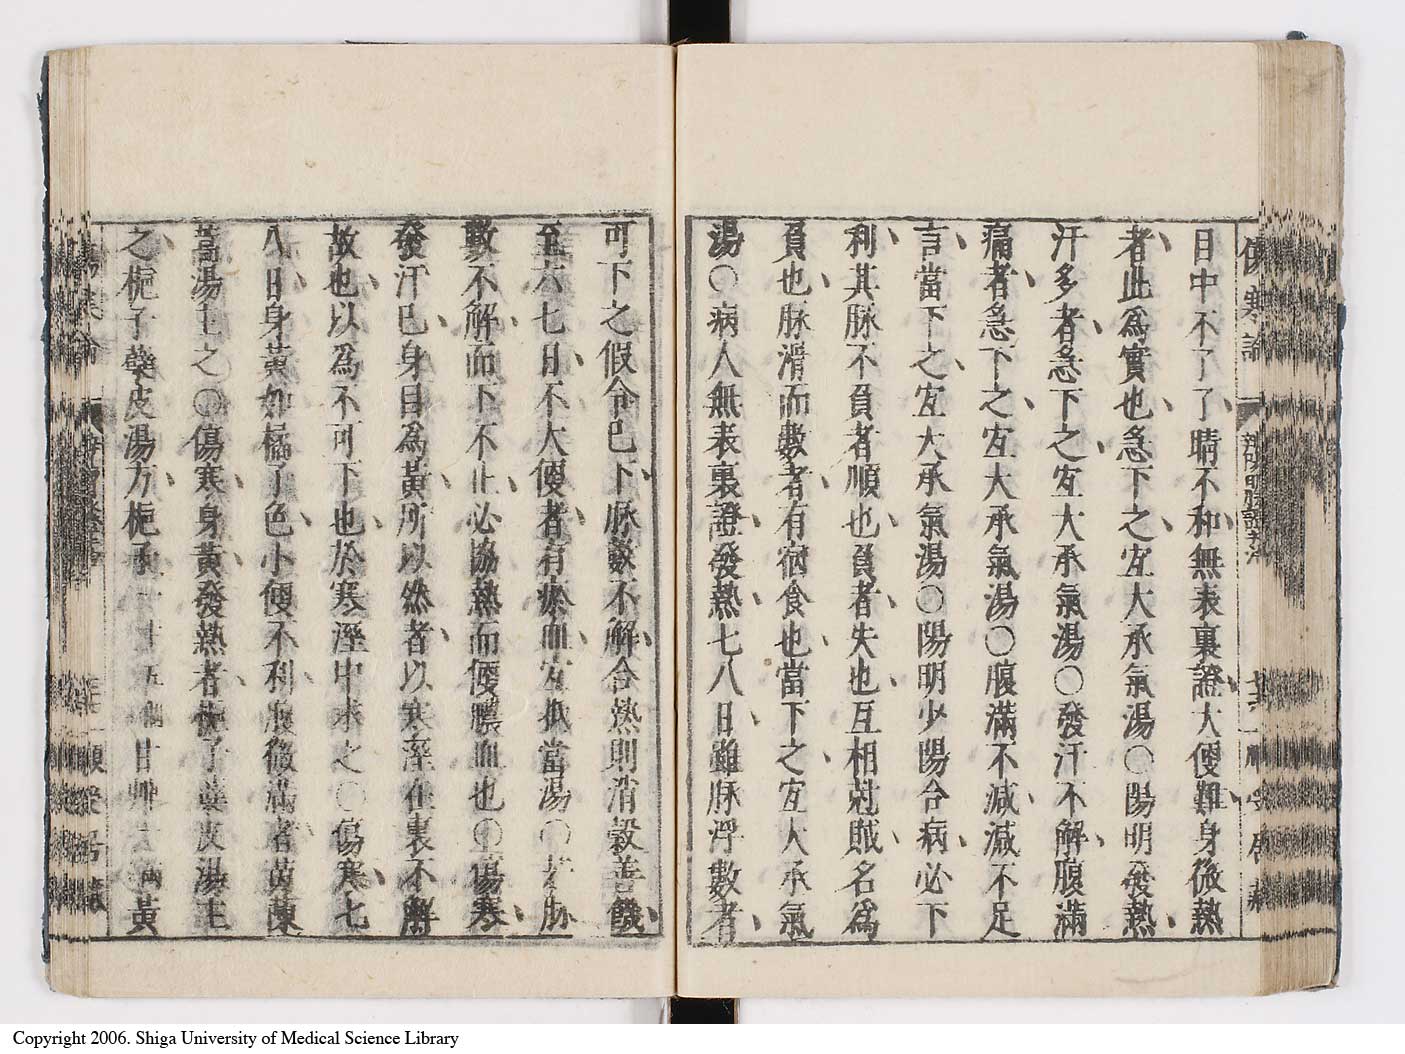 日中不了了睛不和無表裏證大便難身微熱
者此為實也急下之宜大承氣湯〇陽明發熱
汗多者急下之宜大承氣湯〇發汗不解腹滿
痛者急下之宜大承氣湯〇腹滿不減減不足
言當下之宜大承氣湯〇陽明少陽合病必下
利其脉不負者順也負者失也互相尅賊名爲
負也脉滑而數者有宿食也當下之宜大承氣
湯〇病人無表裏證發熱七八日雖脉浮數者
可下之假令已下脉數不解合熱則消穀善饑
至六七日不大便者有瘀血宜抵當湯〇若脉
數不解而下不止必協熱而便膿血也〇傷寒
發汗已身目爲黃所以然者以寒溼在裏不解
故也以爲不可下也於寒溼中求之〇傷寒七
八日身黃如橘子色小便不利腹微滿者茵蔯
蒿湯主之〇傷寒身黃發熱者梔子蘗皮湯主
之梔子蘗皮湯方梔子一十五個甘艸 黃
傷寒論
Copyright 2006. Shiga University of Medical Science Library